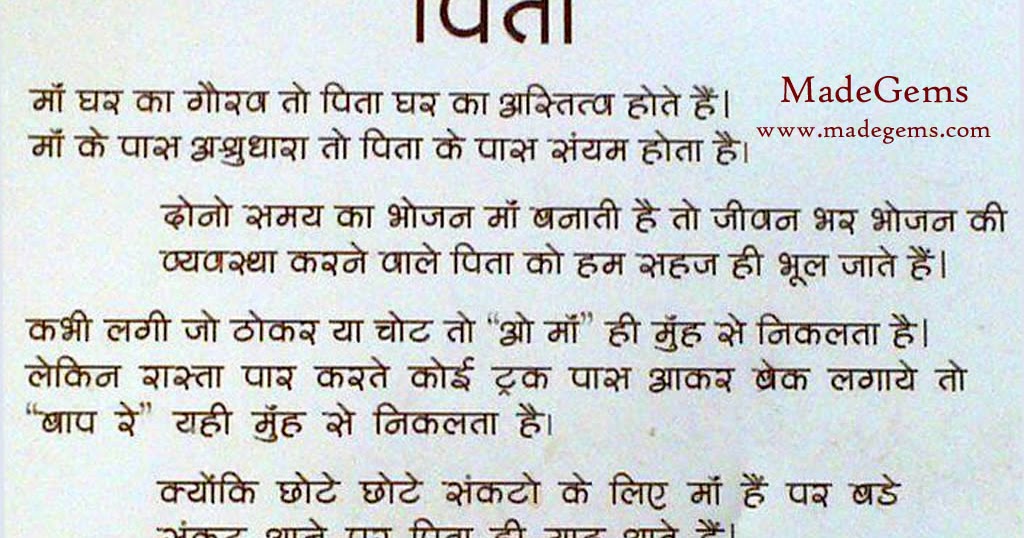 पिता
माँ घर का गौरव तो पिता घर का अस्तित्व होते हैं।
MadeGems
माँ के पास अश्रुधारा तो पिता के पास संयम होता है।
www.madegems.com
दोनो समय का भोजन माँ बनाती है तो जीवन भर भोजन की
व्यवस्था करने वाले पिता को हम सहज ही भूल जाते हैं।
कभी लगी जो ठोकर या चोट तो “ओ माँ” ही मुँह से निकलता है।
लेकिन रास्ता पार करते कोई ट्रक पास आकर ब्रेक लगाये तो
“बाप रे” यही मुँह से निकलता है।
क्योंकि छोटे छोटे संकटो के लिए माँ हैं पर बडे
संकट आने पर पिता ही याद आते हैं।